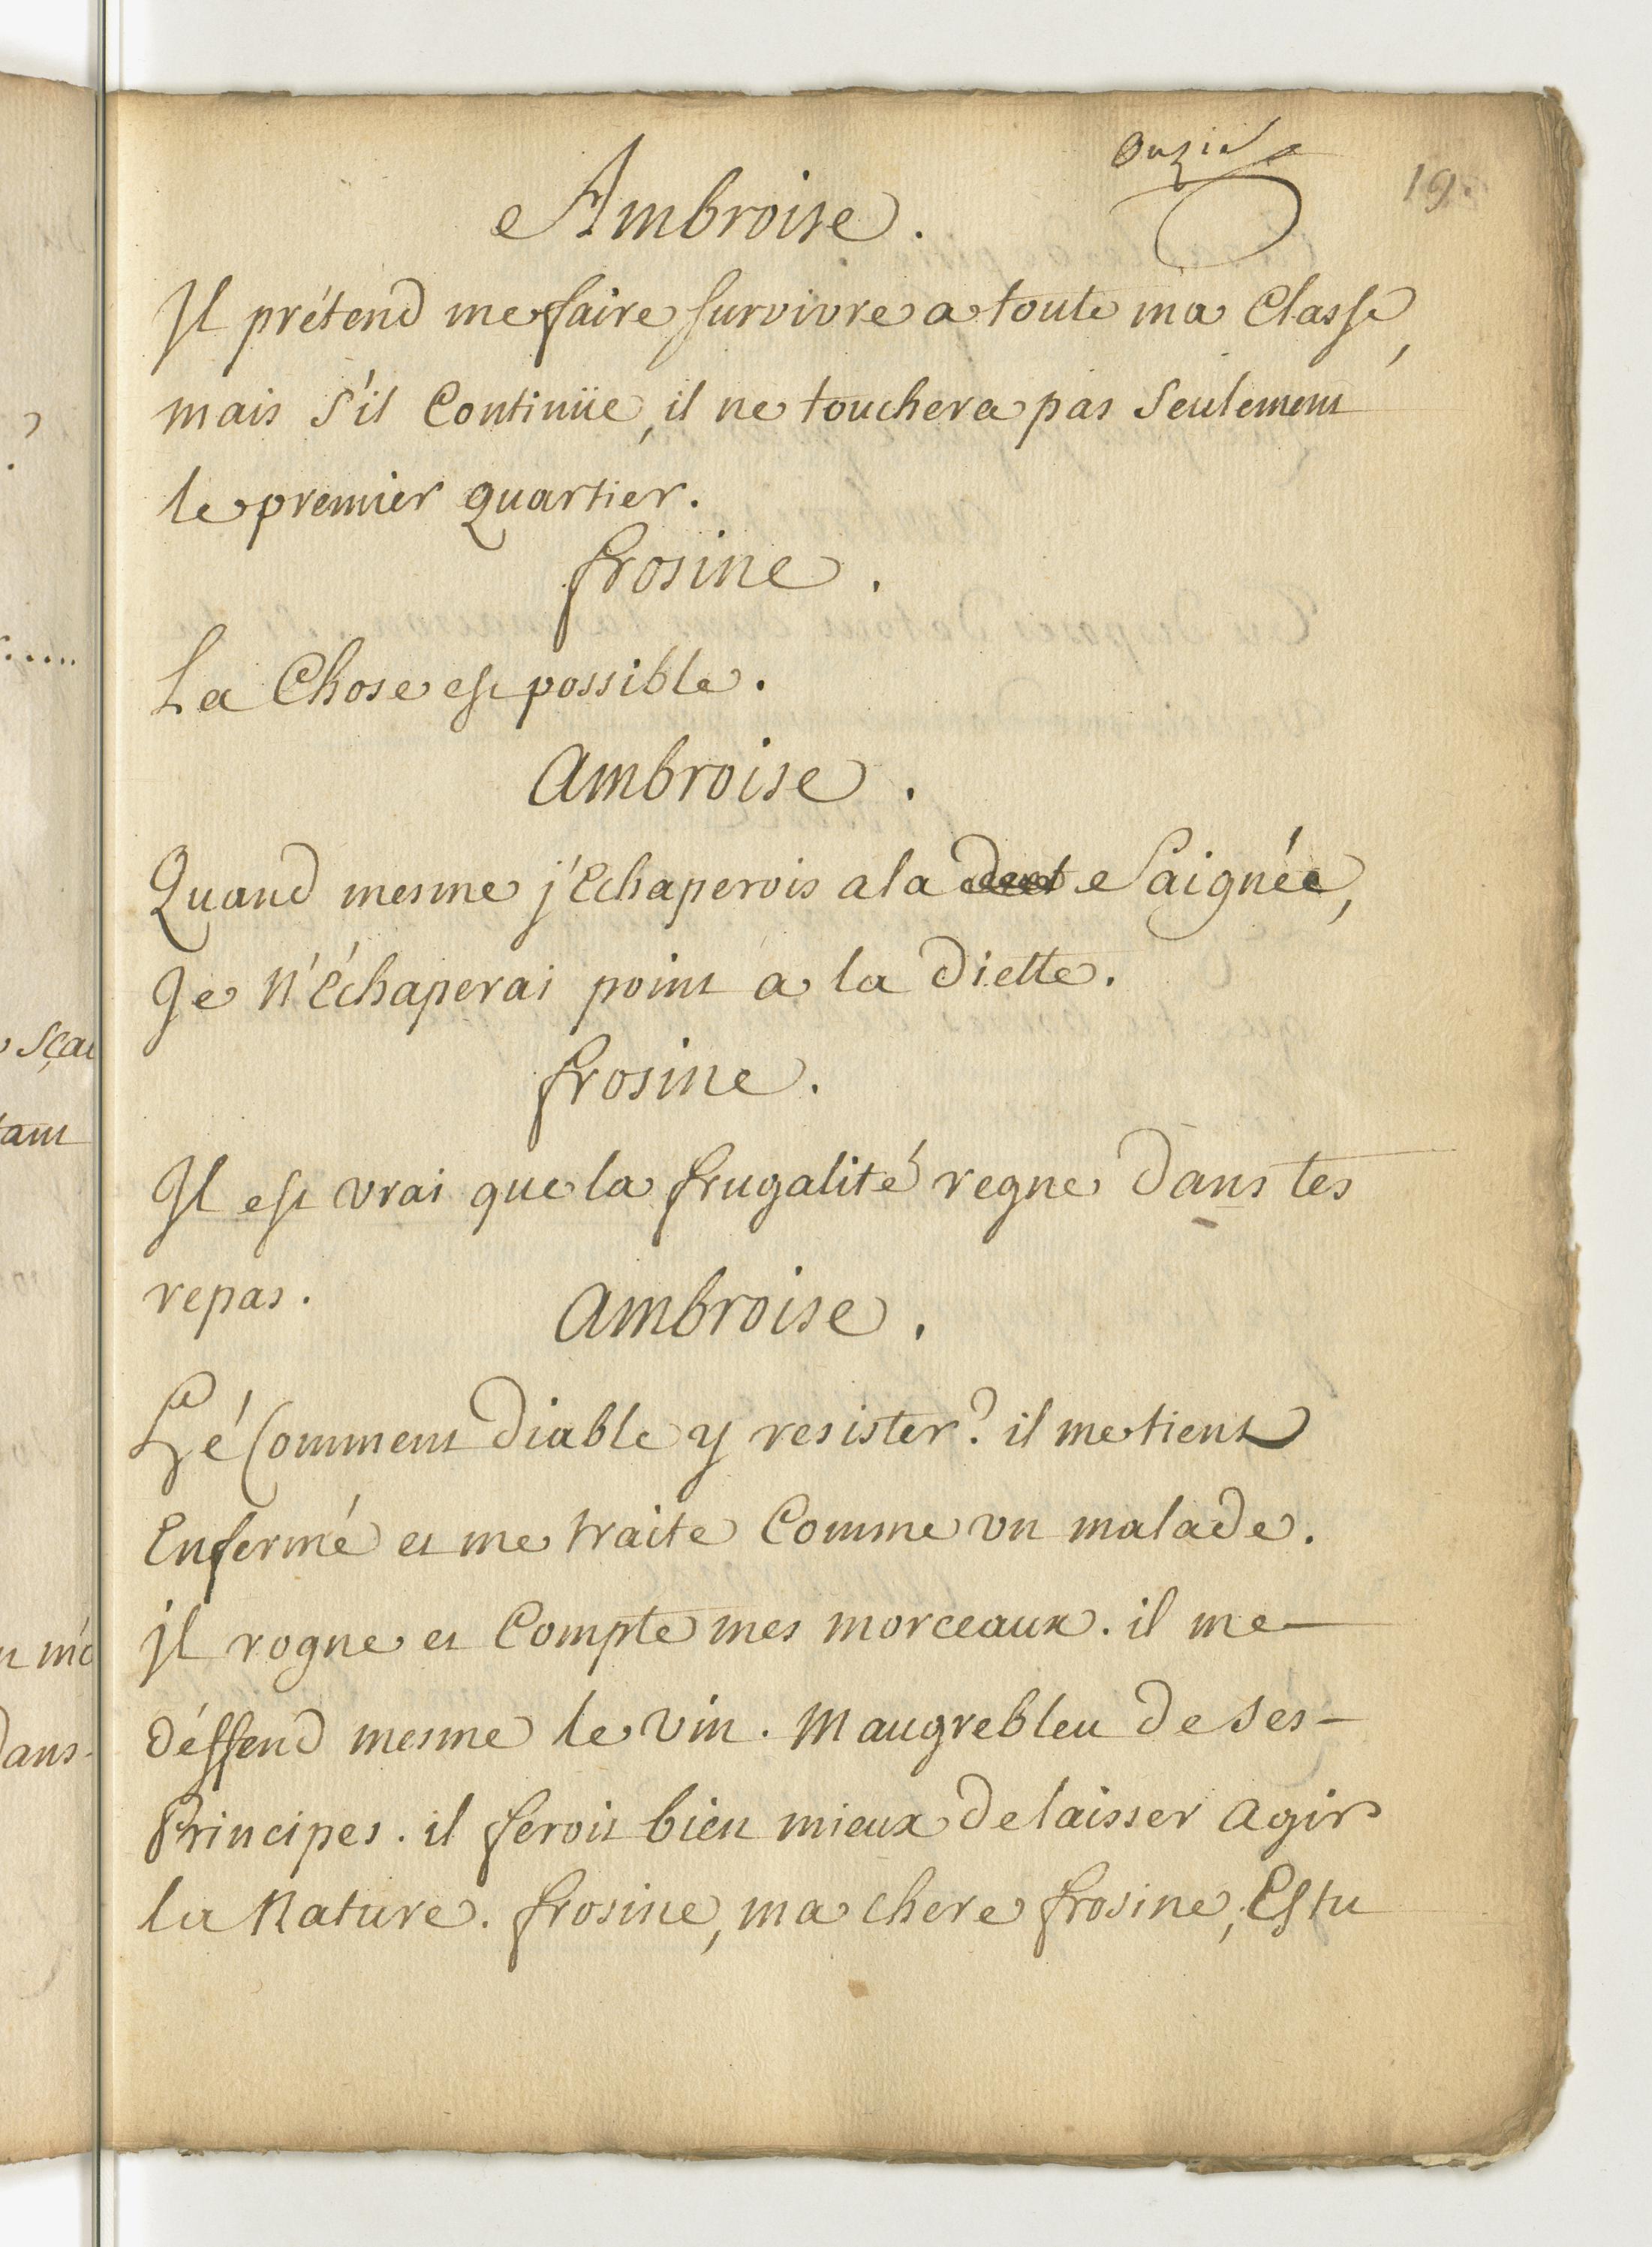 19.
Ambroise.
Il prétend me faire survivre a toute ma Classe,
mais s'il Continüe, il ne touchera pas seulement
le premier quartier.
frosine.
La Chose est possible.
Ambroise.
Quand mesme j'Echaperois a la Saignée,
Je n'Echaperai point a la Diette.
frosine.
Il est vrai que la frugalité regne Dans tes
repas.
Ambroise.
Hé Comment Diable y resister? il me tient
Enfermé et me traite Comme un malade.
il rogne et Compte mes morceaux. il me
déffend mesme le vin. Maugrebleu de ses
Principes. il feroit bien mieux de laisser agir
la Nature. frosine, ma chere frosine, Estu